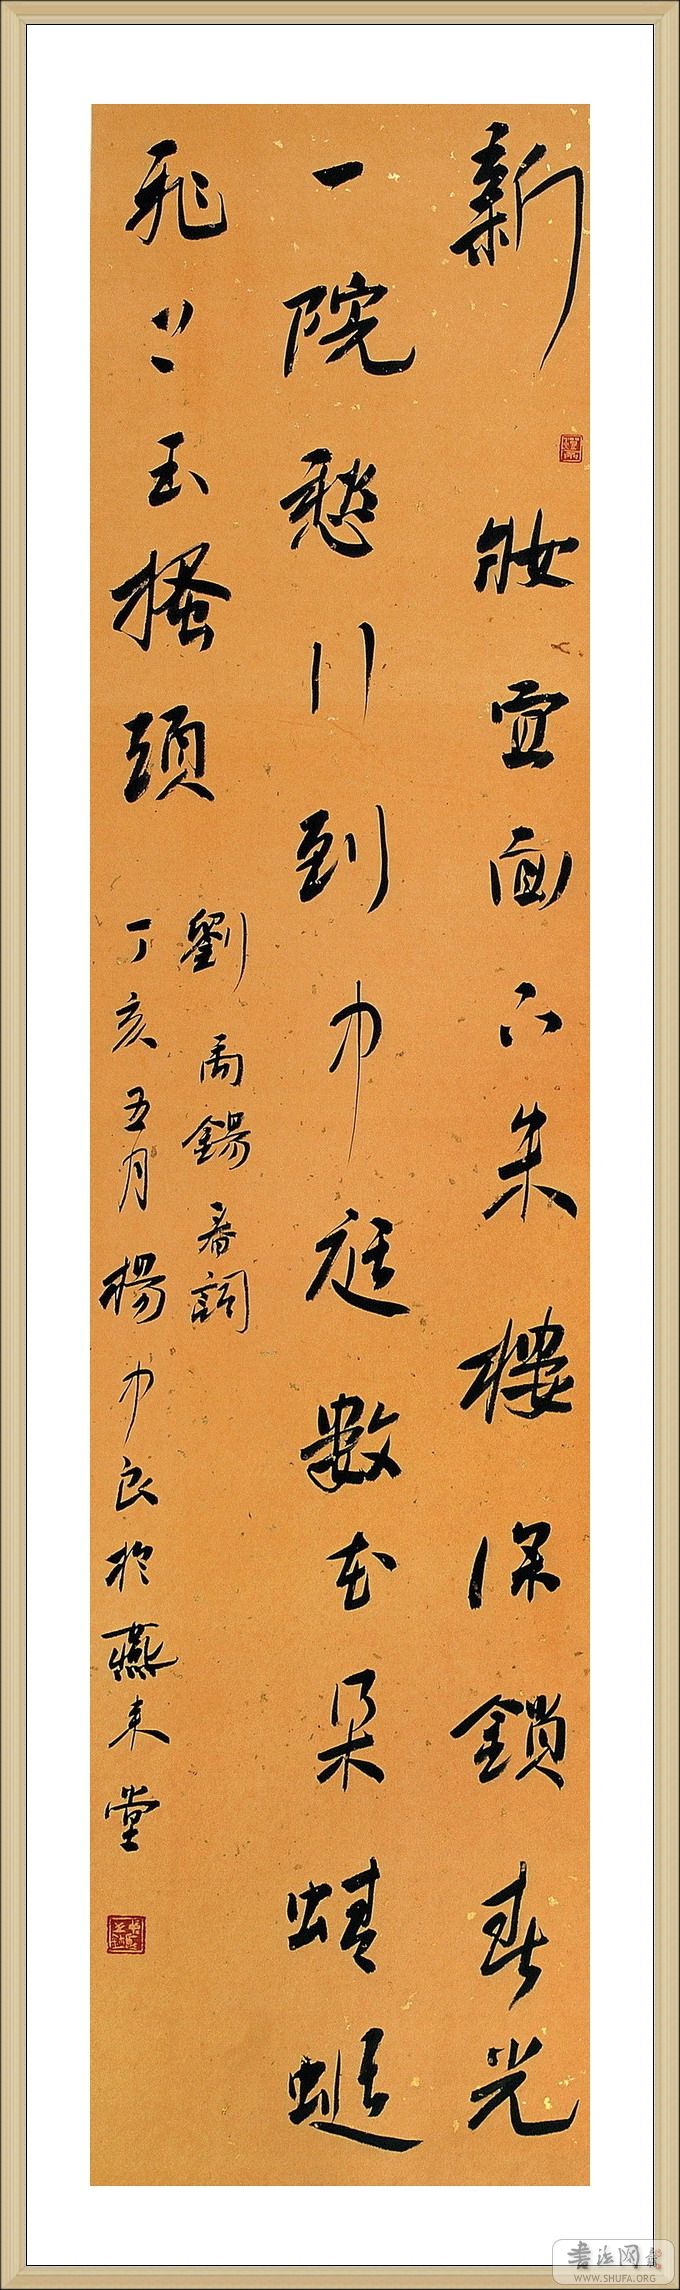 新妝宜面下朱樓深鎖春光
一院愁行到中庭數花朵蜻蜓
飛上玉搔頭
劉禹錫春詞
丁亥五月楊中良於燕来堂
書法网
WWW.SHUFA.ORG